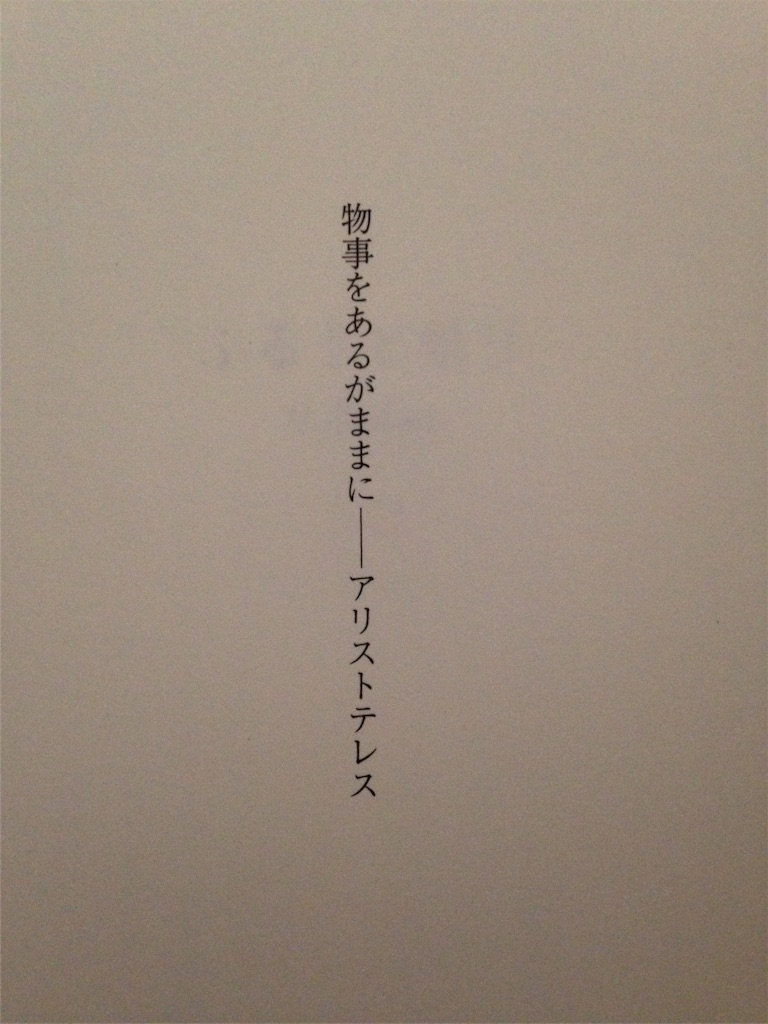 物事をあるがままに――アリストテレス